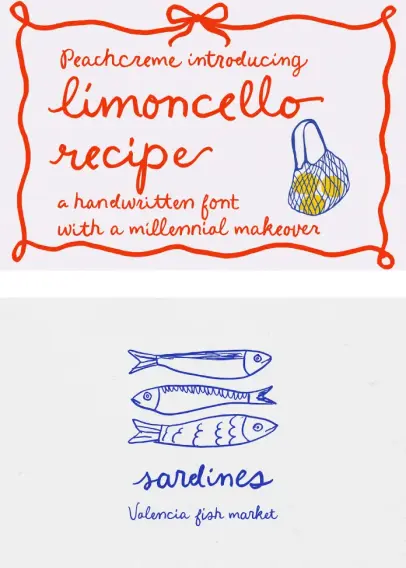 Peachcreme introducing
limoncello
recipe
a handwritten font
with a millennial makeover
sardines
Valencia fish market